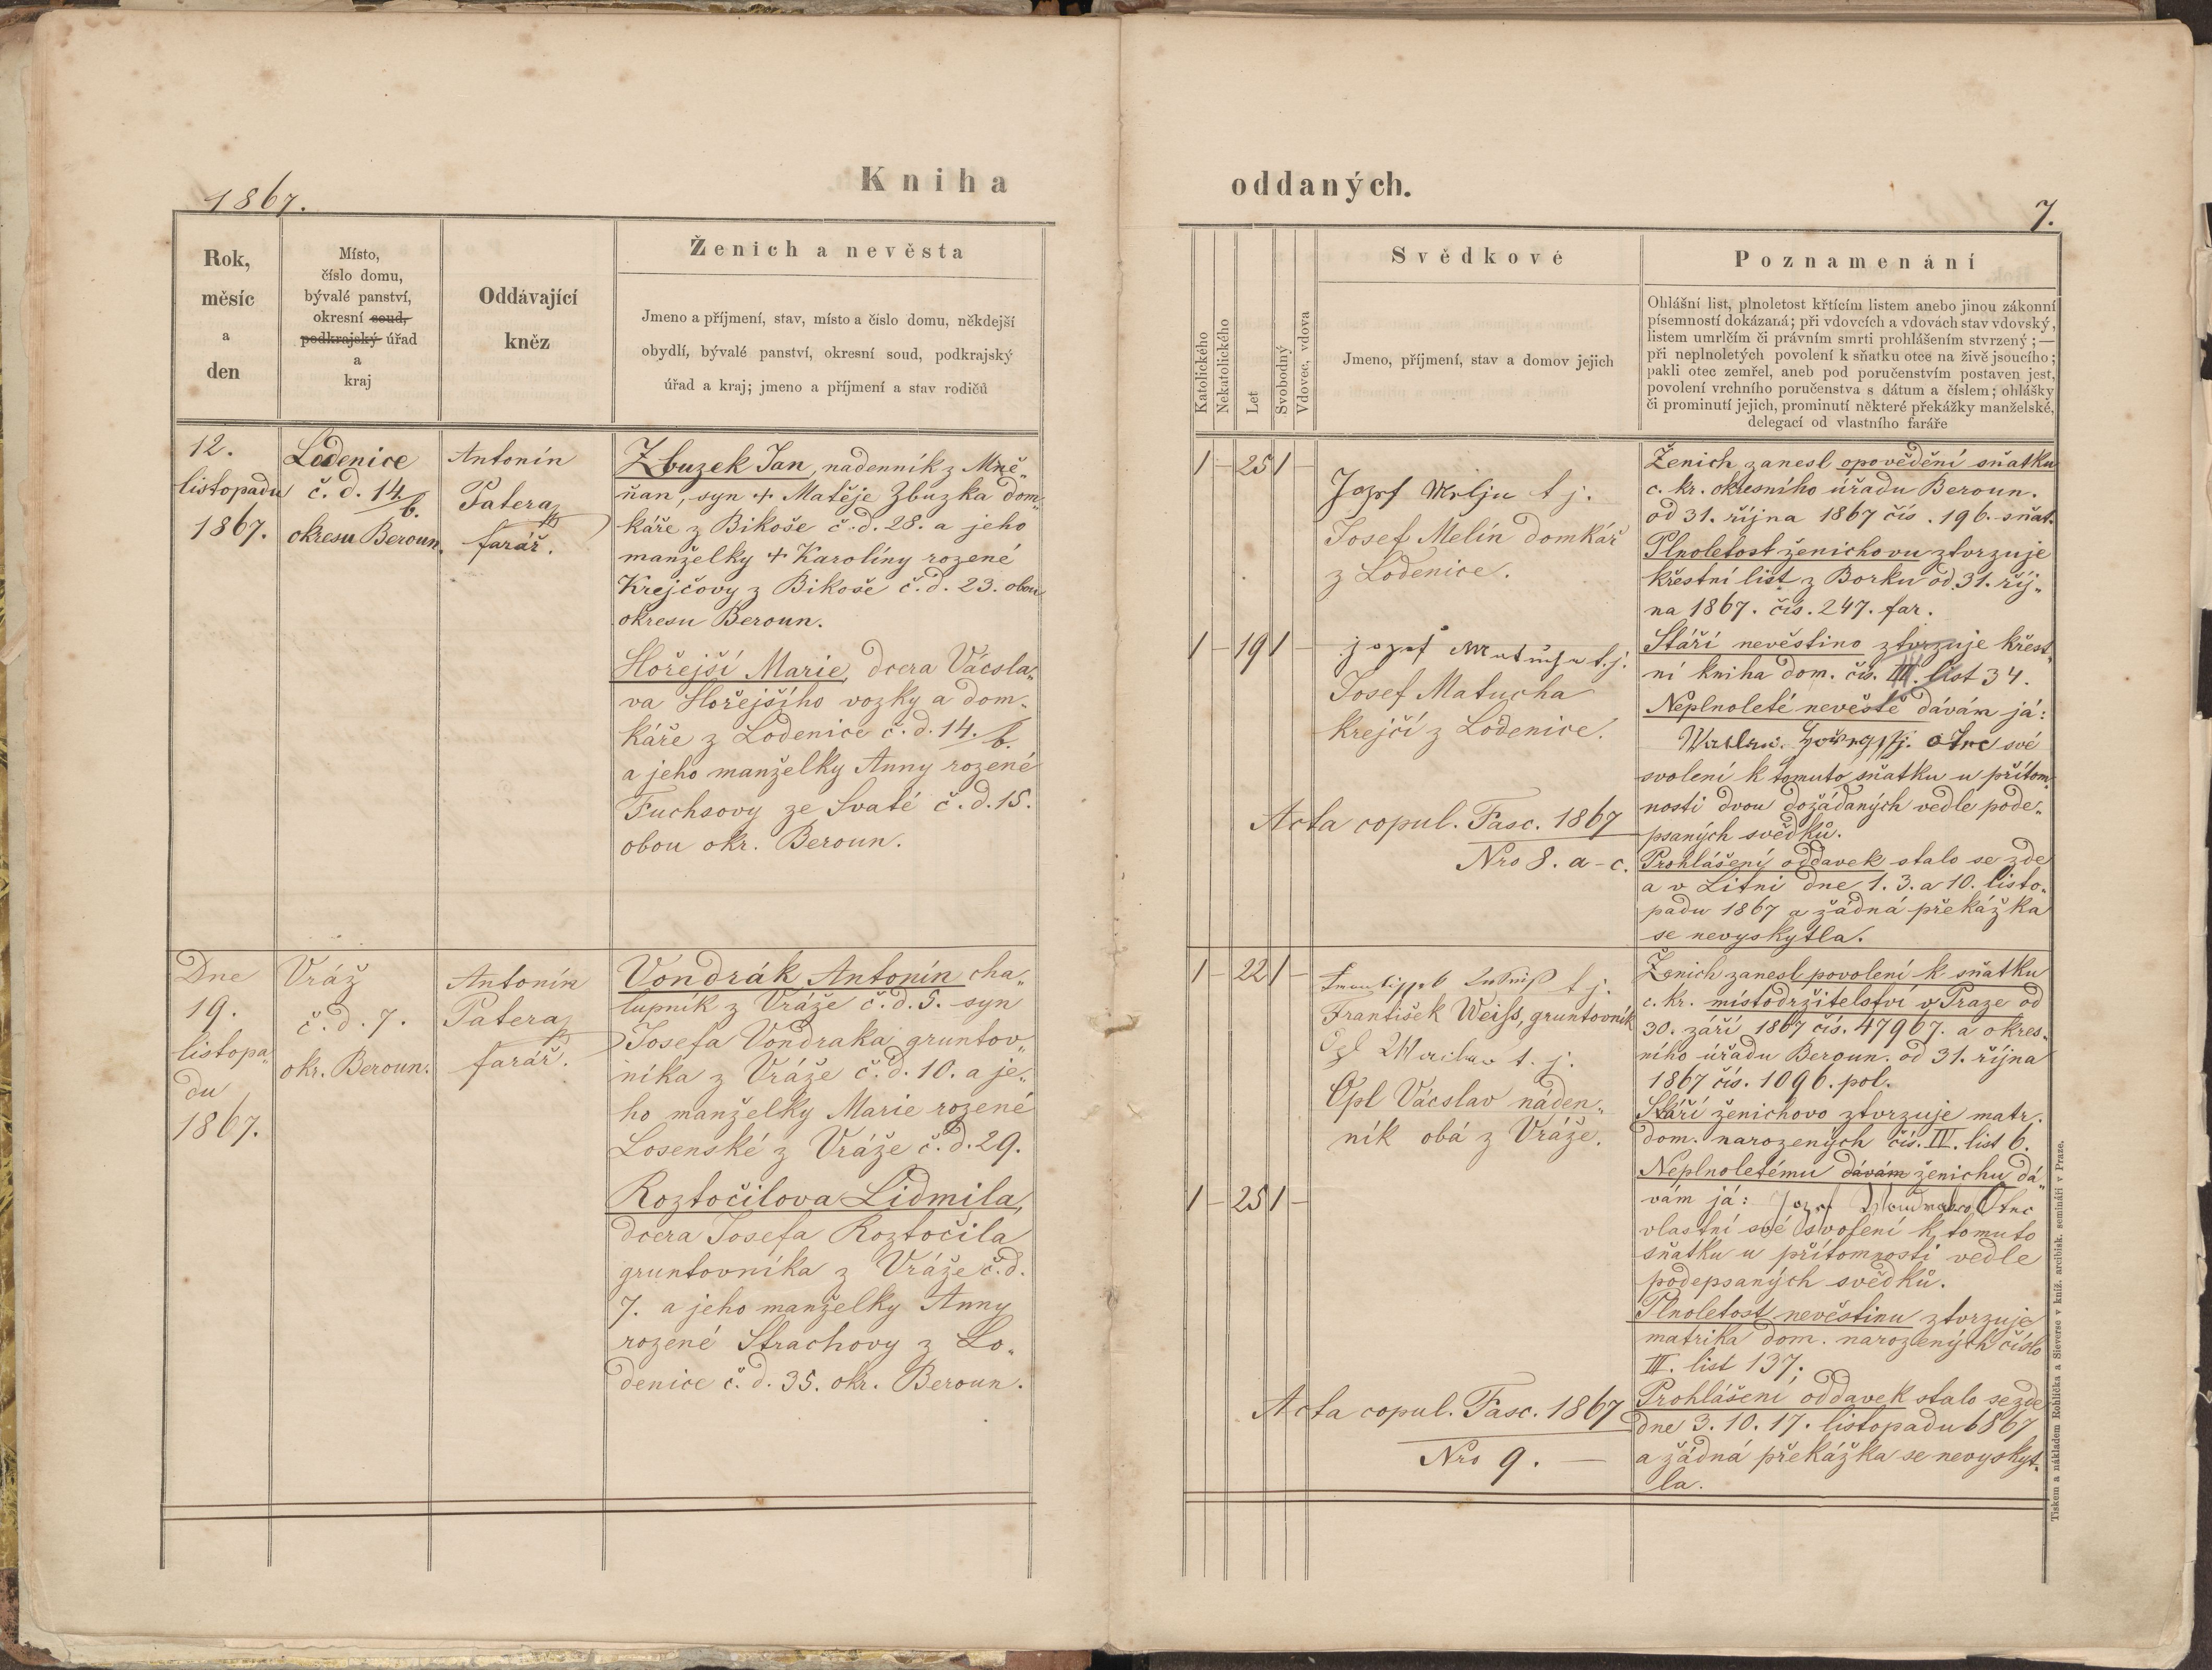 1867.
Kniha
Rok,
měsíc
a
den
Místo,
číslo domu,
bývalé panství,
okresní soud,
podkrajský úřad
a
kraj
Oddávající
kněz
Ženich a nevěsta
Jmeno a příjmení, stav, místo a číslo domu, někdejší
obydlí, bývalé panství, okresní soud, podkrajský
úřad a kraj; jmeno a příjmení a stav rodičů
12.
listopadu
1867.
Loděnice
č. d. 14/b.
okresu Beroun.
Antonín
Patera
farář.
Zbuzek Jan, nadenník z Mně„
ňan, syn + Matěje Zbuzka dom„
káře z Bikoše č. d. 28. a jeho
manželky + Karolíny rozené
Krejčovy z Bikoše č. d. 23. obou
okresu Beroun.
Hořejší Marie, dcera Vácsla„
va Hořejšího vozky a dom„
káře z Loděnice č. d. 14./b.
a jeho manželky Anny rozené
Fuchsovy ze Svaté č. d. 15.
obou okr. Beroun.
Dne
19.
listopa„
du
1867.
Vráž
č. d. 7.
okr. Beroun.
Antonín
Patera
farář.
Vondrák Antonín cha„
lupník z Vráže č. d. 5. syn
Josefa Vondraka gruntov„
níka z Vráže č. d. 10. a je„
ho manželky Marie rozené
Losenské z Vráže č. d. 29.
Roztočilova Lidmila,
dcera Josefa Roztočila
gruntovníka z Vráže č. d.
7. a jeho manželky Anny
rozené Strachovy z Lo„
denice č. d. 35. okr. Beroun.
oddaných.
7.
Katolického
Nekatolického
Let
Svobodný
Vdovec, vdova
Svědkové
Jmeno, příjmení, stav a domov jejich
Poznamenání
Ohlášní list, plnoletost křtícím listem anebo jinou zákonní
písemností dokázaná; při vdovcích a vdovách stav vdovský,
listem umrlčím či právním smrti prohlášením stvrzený; —
při neplnoletých povolení k sňatku otce na živě jsoucího;
pakli otec zemřel, aneb pod poručenstvím postaven jest,
povolení vrchního poručenstva s dátum a číslem; ohlášky
či prominutí jejich, prominutí některé překážky manželské,
delegací od vlastního faráře
1 – 25 1 –
Jozef t j.
Josef Melín domkář
z Loděnice.
1 – 19 1 –
jozef Matucha t. j.
Josef Matucha
krejčí z Loděnice.
Acta copul. Fasc. 1867
Nro 8. a – c.
Ženich zanesl opovědění sňatku
c. kr. okresního úřadu Beroun.
od 31. října 1867 čís. 196. sňat.
Plnoletost ženichovu ztvrzuje
křestní list z Borku od 31. říj„
na 1867. čís. 247. far.
Stáří nevěstino ztvrzuje křest„
ní kniha dom. čís. III. list 34.
Neplnoleté nevěstě dávám já:
otec své
svolení k tomuto sňatku u přítom„
nosti dvou dožádaných vedle pode„
psaných svědků.
Prohlášení oddavek stalo se zde
a v Litni dne 1. 3. a 10. listo„
padu 1867 a žádná překážka
se nevyskytla.
1 – 22 1 –
t j.
František Weiss, gruntovník
t. j.
Opl Václav náden„
ník obá z Vráže.
1 – 25 1 –
Acta copul. Fasc. 1867
Nro 9. —
Ženich zanesl povolení k sňatku
c. kr. místodržitelství v Praze od
30. září 1867 čís. 47967. a okres„
ního úřadu Beroun. od 31. října
1867 čís. 1096. pol.
Stáří ženichovo ztvrzuje matr.
dom. narozených čís. IV. list 6.
Neplnoletému dávám ženichu dá„
vám já: Otec
vlastní své svolení k tomuto
sňatku u přítomnosti vedle
podepsaných svědků.
Plnoletost nevěstinu ztvrzuje
matrika dom. narozených číslo
III. list 137.
Prohlášení oddavek stalo se zde
dne 3. 10. 17. listopadu 1867
a žádná překážka se nevyskyt„
la.
Tiskem a nákladem Rohlíčka a Sieversa v kníž. arcibisk. semináři v Praze.